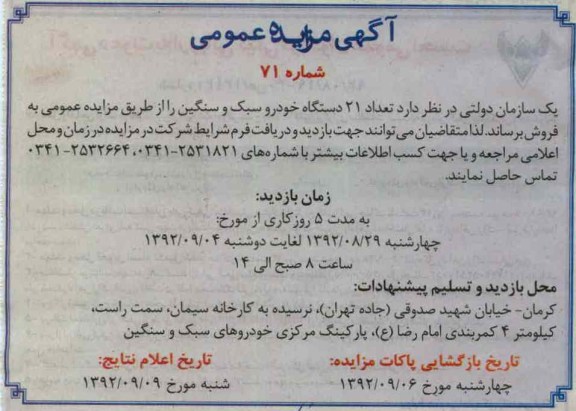 آگهی مزایده عمومی
شماره ۷۱
یک سازمان دولتی در نظر دارد تعداد ۲۱ دستگاه خودرو سبک و سنگین را از طریق مزایده عمومی به
فروش برساند. لذا متقاضیان می‌توانند جهت بازدید و دریافت فرم شرایط شرکت در مزایده در زمان و محل
اعلامی مراجعه و یا جهت کسب اطلاعات بیشتر با شماره‌های ۲۵۳۱۸۲۱-۰۳۴۱، ۲۵۳۲۶۶۴-۰۳۴۱
تماس حاصل نمایند.
زمان بازدید:
به مدت ۵ روز کاری از مورخ:
چهارشنبه ۱۳۹۲/۰۸/۲۹ لغایت دوشنبه ۱۳۹۲/۰۹/۰۴
ساعت ۸ صبح الی ۱۴
محل بازدید و تسلیم پیشنهادات:
کرمان- خیابان شهید صدوقی (جاده تهران)، نرسیده به کارخانه سیمان، سمت راست،
کیلومتر ۴ کمربندی امام رضا (ع)، پارکینگ مرکزی خودروهای سبک و سنگین
تاریخ بازگشایی پاکات مزایده: تاریخ اعلام نتایج:
چهارشنبه مورخ ۱۳۹۲/۰۹/۰۶ شنبه مورخ ۱۳۹۲/۰۹/۰۹